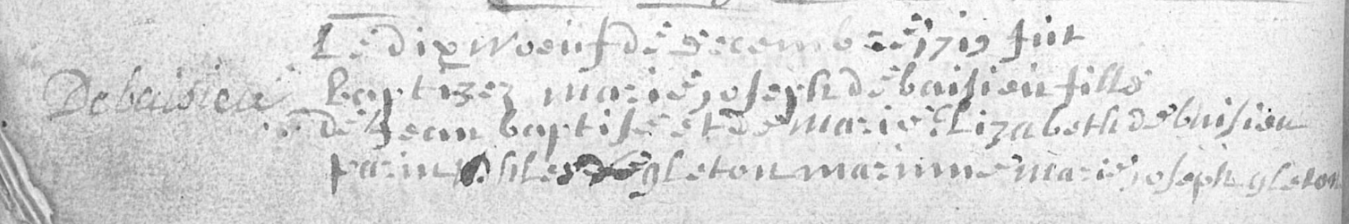 Le dix noeuf de decembre 1719 fut
Debaisieu baptizez marie joseph de baisieu fille
de Jean baptiste et de marie Elizabeth de baisieu
parin gleton marinne marie joseph gleton